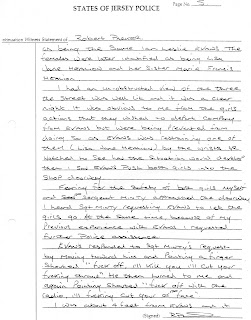 STATES OF JERSEY POLICE
Page No 5
Witness Statement of Robert
as being the same Ian Leslie Evans. The
females were later identified as being Lisa
Jane and her sister Marie Francis
I had an unobstructed view of the three
the street was well lit and it was a clear
night. It was obvious to me from the girls
actions that they wished to depart company
from Evans but were being prevented from
doing so as Evans was restraining one of
them (Lisa Jane) by the wrists. We
watched to see how the situation would develop
then I saw Evans push both girls into the
shop doorway.
Fearing for the safety of both girls myself
and Sergeant Murty approached the doorway
I heard Sgt Murty requesting Evans to let the
girls go. At the same time, because of my
previous experience with Evans I requested
further Police assistance.
Evans responded to Sgt Murty's request
by moving toward him and pointing a finger
shouted "fuck off, I'll kill you I'll cut your
fucking throat". He then turned to me and
again pointing shouted "fuck off with the
radio, I'll fucking cut your face".
I was about 4 feet from Evans and it
Signed: